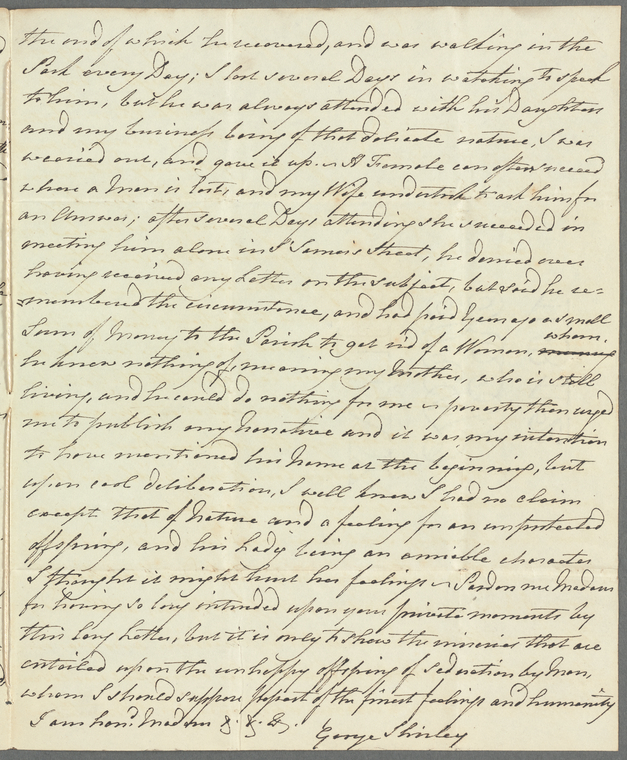 the end of which he recovered, and was walking in the
Park every Day; I lost several Days in watching to speak
to him, but he was always attended with his Daughters
and my business being of that delicate nature, I was
wearied out, and gave it up. A Female can often succeed
where a Man is lost, and my Wife undertook to ask him for
an Answer; after several Days attending she succeeded in
meeting him alone in St James Street, he denied ever
having received any Letter on the subject, but said he re=
=membered the circumstance, and had paid Years ago a small
Sum of Money to the Parish to get rid of a Woman, whom
he knew nothing of, meaning my Mother, who is still
living, and he could do nothing for me poverty then urged
me to publish my Narative and it was my intention
to have mentioned his Name at the beginning, but
upon cool deliberation, I well knew I had no claim
except that of Nature and a feeling for an unprotected
offspring, and his Lady being an amiable character
I thought it might hurt her feelings Pardon me Madam
for having so long intruded upon your private moments by
this long Letter, but it is only to show the miseries that are
entailed upon the unhappy offspring of Seduction by Men,
whom I should suppose possest of the finest feelings and humanity
I am hond. Madam &. &. &.
George Shirley